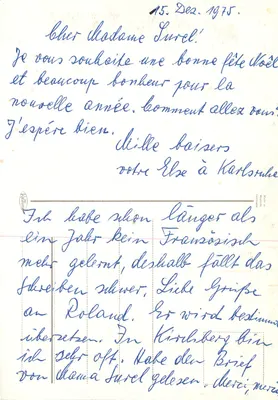 15. Dez. 1975.
Cher Madame Surel!
Je vous souhaite une bonne fête Noël
et beaucoup bonheur pour la
nouvelle année. Comment allez vous?
J'espére bien.
Mille baisers
votre Else à Karlsruhe
Ich habe schon länger als
ein Jahr kein Französisch
mehr gelernt, deshalb fällt das
Schreiben schwer. Liebe Grüße
an Roland. Er wird bestimmt
übersetzen. In Kirchberg bin
ich sehr oft. Habe den Brief
von Mama Surel gelesen. Merci, merci